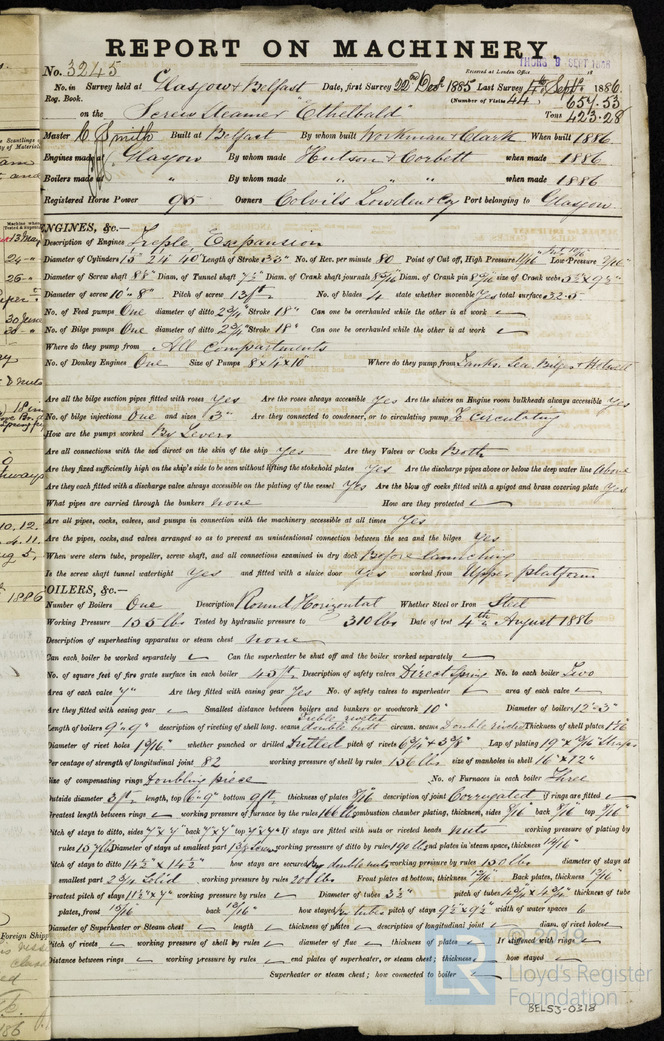 REPORT ON MACHINERY.
No. 3245
THURS 9 SEPT 1886
Received at London Office 18
No. in Survey held at Glasgow & Belfast Date, first Survey 22nd Decr 1885 Last Survey 4th Septr. 1886
Reg. Book. (Number of Visits 44)
on the Screw Steamer "Ethelbald" Tons 657.53
423.28
Master C Smith Built at Belfast By whom built Workman & Clark When built 1886
Engines made at Glasgow By whom made Hutson & Corbett when made 1886
Boilers made at " By whom made " " " when made 1886
Registered Horse Power 95 Owners Colvils Lowden & Co Port belonging to Glasgow
ENGINES, &c.—
Description of Engines Treple Expansion
Diameter of Cylinders 15" 24" 40" Length of Stroke 33" No. of Rev. per minute 80 Point of Cut off, High Pressure Low Pressure
Diameter of Screw shaft Diam. of Tunnel shaft 7½" Diam. of Crank shaft journals Diam. of Crank pin size of Crank webs
Diameter of screw 10'-8" Pitch of screw 13 ft. No. of blades 4 state whether moveable Yes total surface
No. of Feed pumps One diameter of ditto 2¾" Stroke 18" Can one be overhauled while the other is at work
No. of Bilge pumps One diameter of ditto 2¾" Stroke 18" Can one be overhauled while the other is at work
Where do they pump from All Compartments
No. of Donkey Engines One Size of Pumps 8 x 4 x 10" Where do they pump from Tanks, Sea, Bilges & Hotwell
Are all the bilge suction pipes fitted with roses Yes Are the roses always accessible Yes Are the sluices on Engine room bulkheads always accessible Yes
No. of bilge injections One and sizes 3" Are they connected to condenser, or to circulating pump To circulating
How are the pumps worked By Levers
Are all connections with the sea direct on the skin of the ship Yes Are they Valves or Cocks Both
Are they fixed sufficiently high on the ship's side to be seen without lifting the stokehold plates Yes Are the discharge pipes above or below the deep water line Above
Are they each fitted with a discharge valve always accessible on the plating of the vessel Yes Are the blow off cocks fitted with a spigot and brass covering plate Yes
What pipes are carried through the bunkers None How are they protected
Are all pipes, cocks, valves, and pumps in connection with the machinery accessible at all times Yes
Are the pipes, cocks, and valves arranged so as to prevent an unintentional connection between the sea and the bilges Yes
When were stern tube, propeller, screw shaft, and all connections examined in dry dock Before launching
Is the screw shaft tunnel watertight Yes and fitted with a sluice door Yes worked from Upper platform
BOILERS, &c.—
Number of Boilers One Description Round Horizontal Whether Steel or Iron Steel
Working Pressure 155 lbs Tested by hydraulic pressure to 310 lbs Date of test 4th August 1886
Description of superheating apparatus or steam chest None
Can each boiler be worked separately Can the superheater be shut off and the boiler worked separately
No. of square feet of fire grate surface in each boiler 45 ft. Description of safety valves Direct Spring No. to each boiler Two
Area of each valve 7" Are they fitted with easing gear Yes No. of safety valves to superheater area of each valve
Are they fitted with easing gear Smallest distance between boilers and bunkers or woodwork 10" Diameter of boilers 12'-3"
Length of boilers 9'-9" description of riveting of shell long. seams Treble riveted double butt circum. seams Double riveted Thickness of shell plates
Diameter of rivet holes whether punched or drilled Drilled pitch of rivets Lap of plating
Per centage of strength of longitudinal joint 82 working pressure of shell by rules 156 lbs size of manholes in shell 16" x 12"
Size of compensating rings Doubling piece No. of Furnaces in each boiler Three
Outside diameter 3 ft. length, top 6'-9" bottom 9 ft. thickness of plates 8/16" description of joint Corrugated if rings are fitted
Greatest length between rings working pressure of furnace by the rules 166 lbs combustion chamber plating, thickness, sides back top
Pitch of stays to ditto, sides 7" x 7" back 7" x 7" top 7" x 7" If stays are fitted with nuts or riveted heads Nuts working pressure of plating by
rules 157 lbs Diameter of stays at smallest part working pressure of ditto by rules 190 lbs end plates in steam space, thickness
Pitch of stays to ditto 14½" x 14½" how stays are secured By double nuts working pressure by rules 150 lbs diameter of stays at
smallest part 2¾ Solid working pressure by rules 200 lbs Front plates at bottom, thickness Back plates, thickness
Greatest pitch of stays 11½" x 7" working pressure by rules Diameter of tubes 3½" pitch of tubes thickness of tube
plates, front back how stayed By tubes pitch of stays 9½" x 9½" width of water spaces 6
Diameter of Superheater or Steam chest length thickness of plates description of longitudinal joint diam. of rivet holes
Pitch of rivets working pressure of shell by rules diameter of flue thickness of plates If stiffened with rings
Distance between rings working pressure by rules end plates of superheater, or steam chest; thickness how stayed
Superheater or steam chest; how connected to boiler
© 2019
LR
Lloyd's Register
Foundation
BEL53-0318